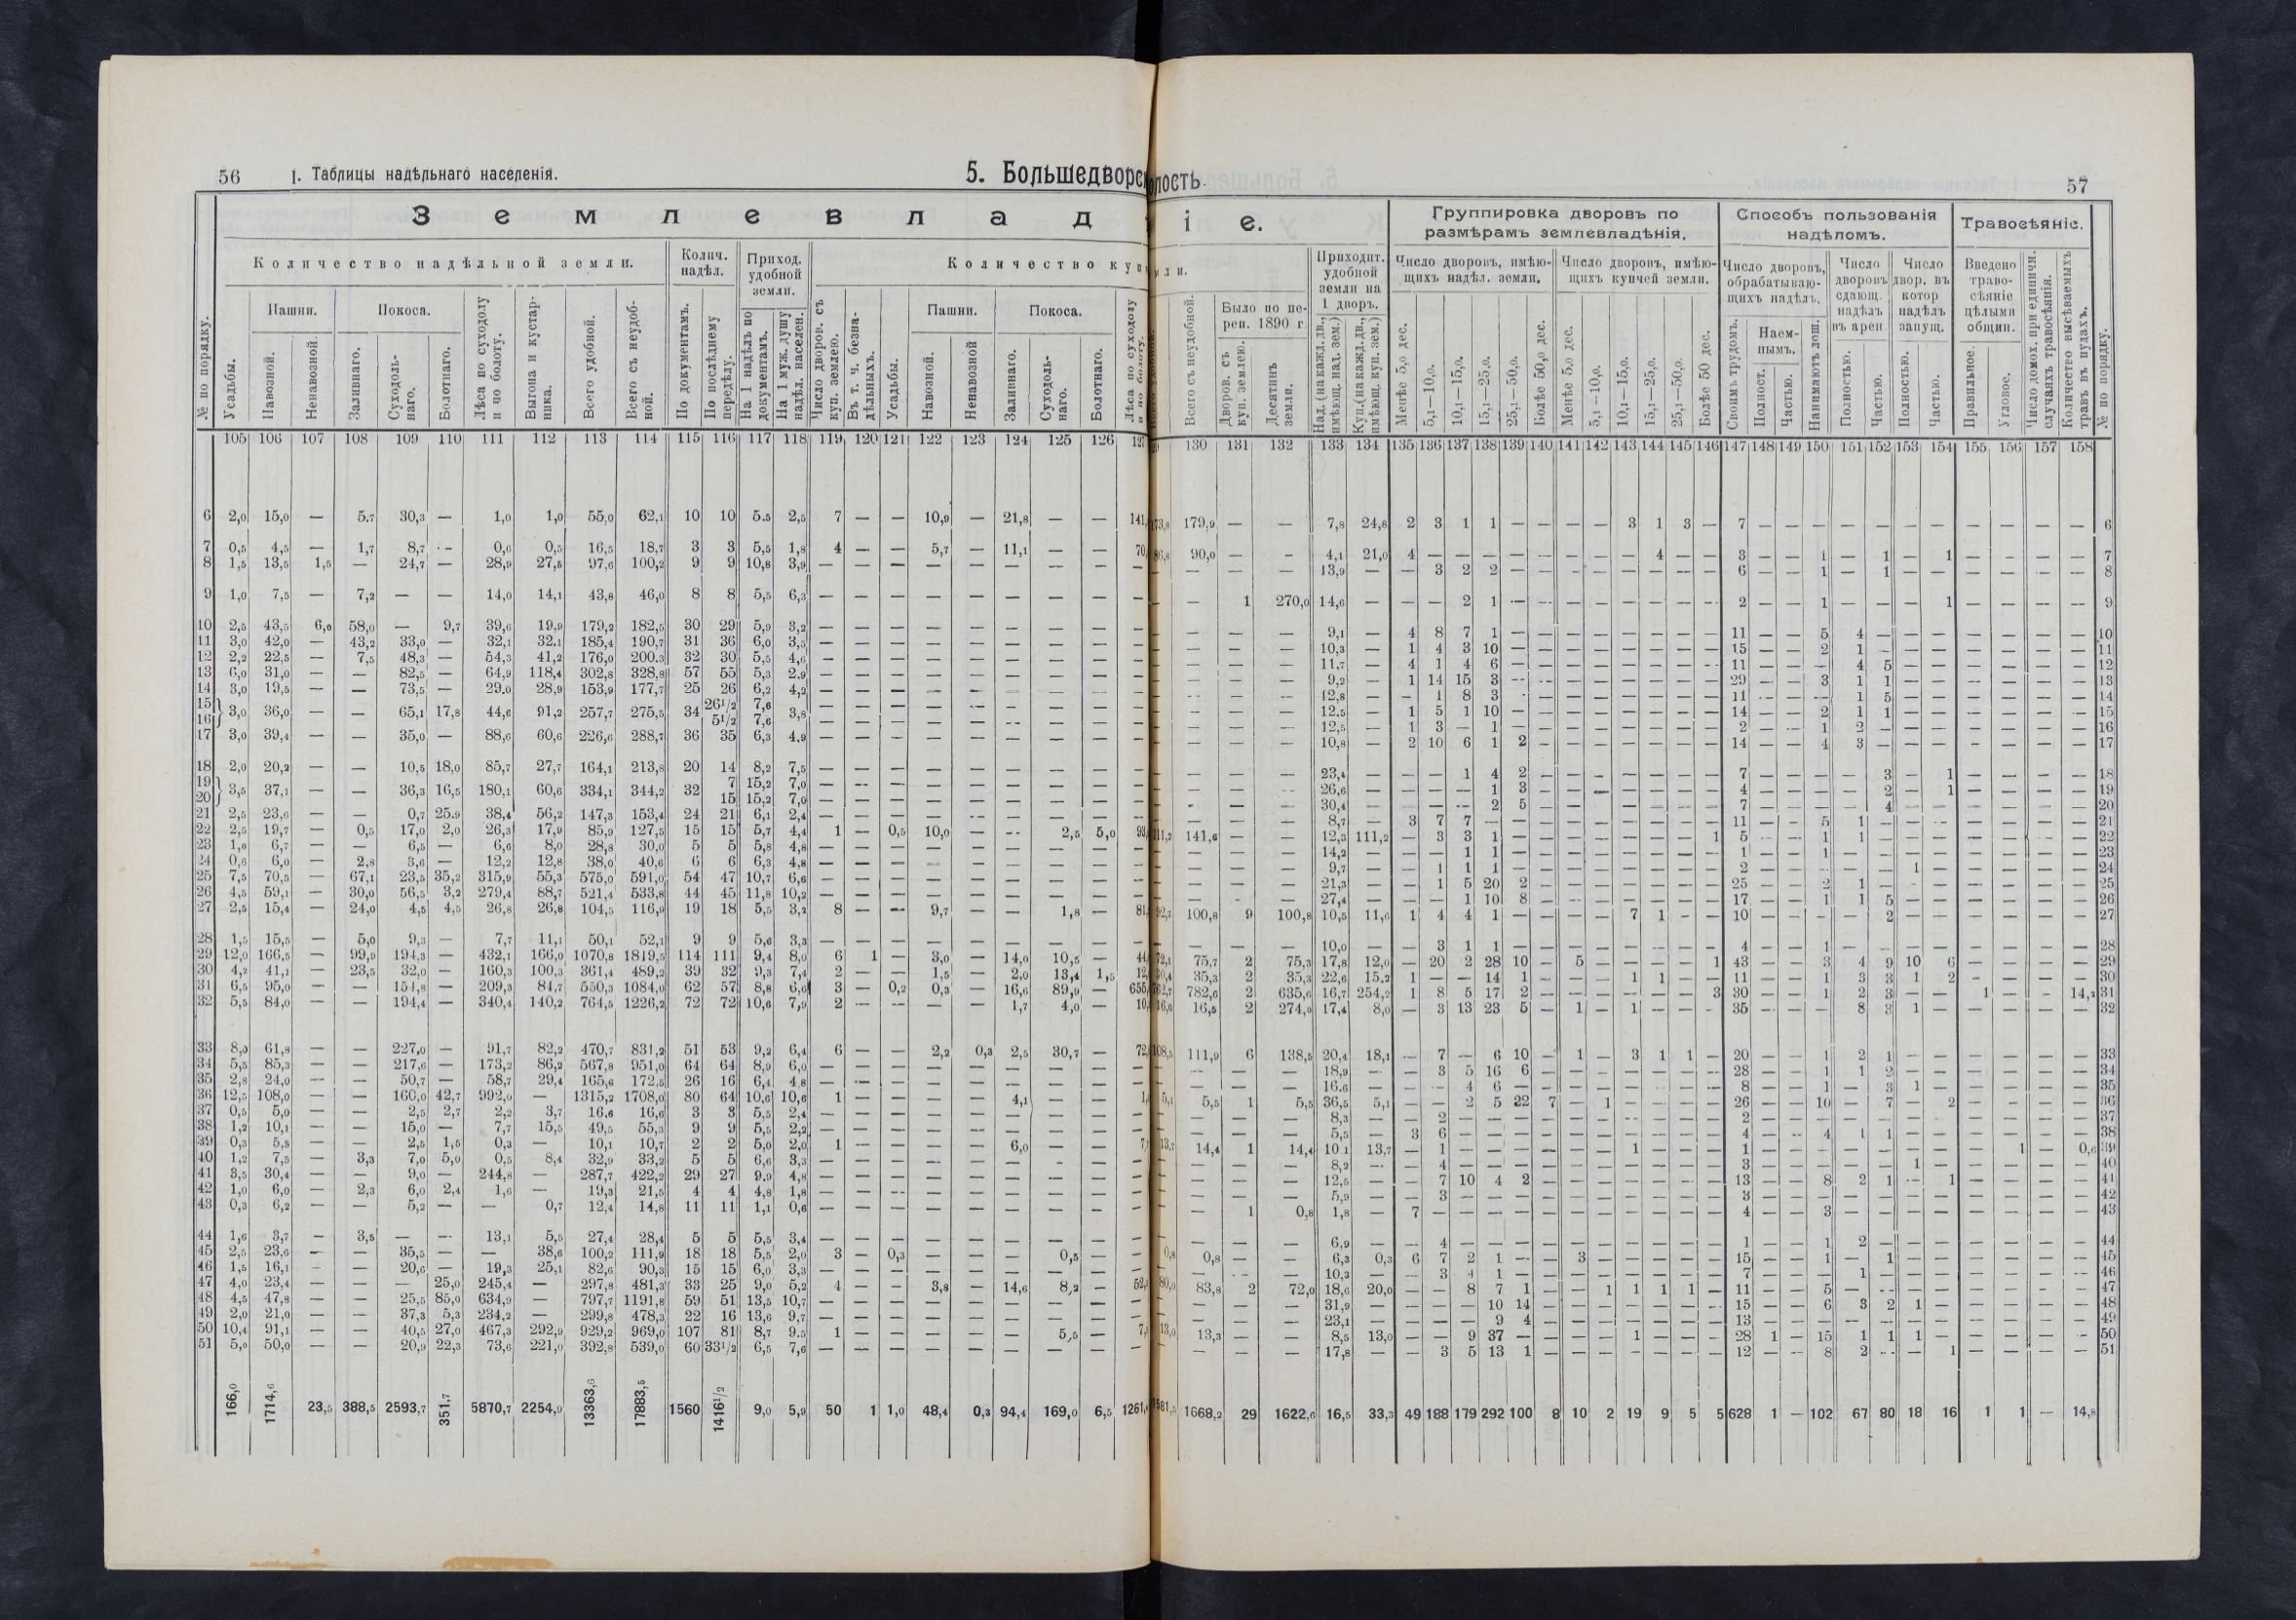 56 I. Таблицы надѣльнаго населенія. 5. Большедворск
Землевлад
Количество надѣльной земли. Колич. надѣл. Приход. удобной земли. Количество куп
№ по порядку. Усадьбы. Пашни. Навозной. Ненавозной. Покоса. Заливнаго. Суходольнаго. Болотнаго. Лѣса по суходолу и по болоту. Выгона и кустарника. Всего удобной. Всего съ неудобной. По документамъ. По послѣднему передѣлу. На 1 надѣлъ по документамъ. На 1 муж. душу надѣл. населен. Число дворов. съ куп. землею. Въ т. ч. безнадѣльныхъ. Усадьбы. Пашни. Навозной. Ненавозной Покоса. Заливнаго. Суходольнаго. Болотнаго. Лѣса по суходолу и по болоту.
105 106 107 108 109 110 111 112 113 114 115 116 117 118 119 120 121 122 123 124 125 126 127
6 2,0 15,0 — 5,7 30,3 — 1,0 1,0 55,0 62,1 10 10 5,5 2,5 7 — — 10,9 — 21,8 — — 141,
7 0,5 4,5 — 1,7 8,7 — 0,6 0,5 16,5 18,7 3 3 5,5 1,8 4 — — 5,7 — 11,1 — — 70,
8 1,5 13,5 1,5 — 24,7 — 28,9 27,5 97,6 100,2 9 9 10,8 3,9 — — — — — — — — —
9 1,0 7,5 — 7,2 — — 14,0 14,1 43,8 46,0 8 8 5,5 6,3 — — — — — — — — —
10 2,5 43,5 6,0 58,0 — 9,7 39,6 19,9 179,2 182,5 30 29 5,9 3,2 — — — — — — — — —
11 3,0 42,0 — 43,2 33,0 — 32,1 32,1 185,4 190,7 31 36 6,0 3,5 — — — — — — — — —
12 2,2 22,5 — 7,5 48,3 — 54,3 41,2 176,0 200,3 32 30 5,5 4,6 — — — — — — — — —
13 6,0 31,0 — — 82,5 — 64,9 118,4 302,8 328,8 57 55 5,3 2,9 — — — — — — — — —
14 3,0 19,5 — — 73,5 — 29,0 28,9 153,9 177,7 25 26 6,2 4,2 — — — — — — — — —
15 26½ 7,6 — — — — — — — — —
16 } 3,0 36,0 — — 65,1 17,8 44,6 91,2 257,7 275,5 34 5½ 7,6 3,8 — — — — — — — — —
17 3,0 39,4 — — 35,0 — 88,6 60,6 226,6 288,7 36 35 6,3 4,9 — — — — — — — — —
18 2,0 20,2 — — 10,5 18,0 85,7 27,7 164,1 213,8 20 14 8,2 7,5 — — — — — — — — —
19 7 15,2 7,0 — — — — — — — — —
20 } 3,5 37,1 — — 36,3 16,5 180,1 60,6 334,1 344,2 32 15 15,2 7,0 — — — — — — — — —
21 2,5 23,6 — — 0,7 25,9 38,4 56,2 147,3 153,4 24 21 6,1 2,4 — — — — — — — — —
22 2,5 19,7 — 0,5 17,0 2,0 26,3 17,9 85,9 127,5 15 15 5,7 4,4 1 — 0,5 10,0 — — 2,5 5,0 93,
23 1,0 6,7 — — 6,5 — 6,6 8,0 28,8 30,0 5 5 5,8 4,8 — — — — — — — — —
24 0,6 6,0 — 2,8 3,6 — 12,2 12,8 38,0 40,6 6 6 6,3 4,8 — — — — — — — — —
25 7,5 70,5 — 67,1 23,5 35,2 315,9 55,3 575,0 591,0 54 47 10,7 6,6 — — — — — — — — —
26 4,5 59,1 — 30,0 56,5 3,2 279,4 88,7 521,4 533,8 44 45 11,8 10,2 — — — — — — — — —
27 2,5 15,4 — 24,0 4,5 4,5 26,8 26,8 104,5 116,9 19 18 5,5 3,2 8 — — 9,7 — — 1,8 — 81,
28 1,5 15,5 — 5,0 9,3 — 7,7 11,1 50,1 52,1 9 9 5,6 3,3 — — — — — — — — —
29 12,0 166,5 — 99,9 194,3 — 432,1 166,0 1070,8 1819,5 114 111 9,4 8,0 6 1 — 3,0 — 14,0 10,5 — 44,
30 4,2 41,1 — 23,5 32,0 — 160,3 100,3 361,4 489,2 39 32 9,3 7,4 2 — — 1,5 — 2,0 13,4 1,5 12,
31 6,5 95,0 — — 154,8 — 209,3 84,7 550,3 1084,0 62 57 8,8 6,6 3 — 0,2 0,3 — 16,6 89,9 — 655,
32 5,5 84,0 — — 194,4 — 340,4 140,2 764,5 1226,2 72 72 10,6 7,9 2 — — — — 1,7 4,0 — 10,
33 8,0 61,8 — — 227,0 — 91,7 82,2 470,7 831,2 51 53 9,2 6,4 6 — — 2,2 0,3 2,5 30,7 — 72,
34 5,5 85,3 — — 217,6 — 173,2 86,2 567,8 951,0 64 64 8,9 6,0 — — — — — — — — —
35 2,8 24,0 — — 50,7 — 58,7 29,4 165,6 172,5 26 16 6,4 4,8 — — — — — — — — —
36 12,5 108,0 — — 160,0 42,7 992,0 — 1315,2 1708,0 80 64 10,6 10,6 1 — — — — 4,1 — — 1,
37 0,5 5,0 — — 2,5 2,7 2,2 3,7 16,6 16,6 3 3 5,5 2,4 — — — — — — — — —
38 1,2 10,1 — — 15,0 — 7,7 15,5 49,5 55,3 9 9 5,5 2,2 — — — — — — — — —
39 0,3 5,5 — — 2,5 1,5 0,3 — 10,1 10,7 2 2 5,0 2,0 1 — — — — 6,0 — — 7,
40 1,2 7,5 — 3,3 7,0 5,0 0,5 8,4 32,9 33,2 5 5 6,6 3,3 — — — — — — — — —
41 3,5 30,4 — — 9,0 — 244,8 — 287,7 422,2 29 27 9,9 4,8 — — — — — — — — —
42 1,0 6,0 — 2,3 6,0 2,4 1,6 — 19,3 21,5 4 4 4,8 1,8 — — — — — — — — —
43 0,3 6,2 — — 5,2 — — 0,7 12,4 14,8 11 11 1,1 0,6 — — — — — — — — —
44 1,6 3,7 — 3,5 — — 13,1 5,5 27,4 28,4 5 5 5,5 3,4 — — — — — — — — —
45 2,5 23,6 — — 35,5 — — 38,6 100,2 111,9 18 18 5,5 2,0 3 — 0,3 — — — 0,5 — —
46 1,5 16,1 — — 20,6 — 19,3 25,1 82,6 90,3 15 15 6,0 3,3 — — — — — — — — —
47 4,0 23,4 — — — 25,0 245,4 — 297,8 481,3 33 25 9,0 5,2 4 — — 3,8 — 14,6 8,2 — 52,
48 4,5 47,8 — — 25,5 85,0 634,9 — 797,7 1191,8 59 51 13,5 10,7 — — — — — — — — —
49 2,0 21,0 — — 37,3 5,3 234,2 — 299,8 478,3 22 16 13,6 9,7 — — — — — — — — —
50 10,4 91,1 — — 40,5 27,0 467,3 292,9 929,2 969,0 107 81 8,7 9,5 1 — — — — — 5,5 — 7,
51 5,0 50,0 — — 20,9 22,3 73,6 221,0 392,8 539,0 60 33½ 6,5 7,6 — — — — — — — — —
166,0 1714,6 23,5 388,5 2593,7 351,7 5870,7 2254,9 13363,6 17883,5 1560 1416½ 9,0 5,9 50 1 1,0 48,4 0,3 94,4 169,0 6,5 1261,
олость. 57
іе. Группировка дворовъ по размѣрамъ землевладѣнія. Способъ пользованія надѣломъ. Травосѣяніе.
Всего съ неудобной. Было по пе-реп. 1890 г Дворов. съ куп. землею. Десятинъ земли. Приходит. удобной земли на 1 дворъ. Над. (на кажд. дв., имѣющ. над. зем.) Куп. (на кажд. дв., имѣющ. куп. зем.) Число дворовъ, имѣющихъ надѣл. земли. Менѣе 5,0 дес. 5,1—10,0. 10,1—15,0. 15,1—25,0. 25,1—50,0. Болѣе 50,0 дес. Число дворовъ, имѣющихъ купчей земли. Менѣе 5,0 дес. 5,1—10,0. 10,1—15,0. 15,1—25,0. 25,1—50,0. Болѣе 50 дес. Число дворовъ, обрабатывающихъ надѣлъ. Своимъ трудомъ. Наемнымъ. Полност. Частью. Нанимаютъ лош. Число дворовъ сдающ. надѣлъ въ арен Полностью. Частью. Число двор. въ котор надѣлъ запущ. Полностью. Частью. Введено травосѣяніе цѣлыми общин. Правильное. Угловое. Число домох. при единичн. случаяхъ травосѣянія. Количество высѣваемыхъ травъ въ пудахъ. № по порядку.
130 131 132 133 134 135 136 137 138 139 140 141 142 143 144 145 146 147 148 149 150 151 152 153 154 155 156 157 158
173,8 179,9 — — 7,8 24,8 2 3 1 1 — — — — 3 1 3 — 7 — — — — — — — — — — — 6
86,8 90,0 — — 4,1 21,0 4 — — — — — — — — 4 — — 3 — — 1 — 1 — 1 — — — — 7
— — — 13,9 — — 3 2 2 — — — — — — — — 6 — — 1 — 1 — — — — — — 8
— 1 270,0 14,6 — — — 2 1 — — — — — — — — 2 — — 1 — — — 1 — — — — 9
— — — 9,1 — 4 8 7 1 — — — — — — — — 11 — — 5 4 — — — — — — — 10
— — — 10,3 — 1 4 3 10 — — — — — — — — 15 — — 2 1 — — — — — — — 11
— — — 11,7 — 4 1 4 6 — — — — — — — — 11 — — — 4 5 — — — — — — 12
— — — 9,2 — 1 14 15 3 — — — — — — — — 29 — — 3 1 1 — — — — — — 13
— — — 12,8 — — 1 8 3 — — — — — — — — 11 — — — 1 5 — — — — — — 14
— — — 12,5 — 1 5 1 10 — — — — — — — — 14 — — 2 1 1 — — — — — — 15
— — — 12,5 — 1 3 — 1 — — — — — — — — 2 — — 1 2 — — — — — — — 16
— — — 10,8 — 2 10 6 1 2 — — — — — — — 14 — — 4 3 — — — — — — — 17
— — — 23,4 — — — 1 4 2 — — — — — — — 7 — — — — 3 — 1 — — — — 18
— — — 26,6 — — — — 1 3 — — — — — — — 4 — — — — 2 — 1 — — — — 19
— — — 30,4 — — — — 2 5 — — — — — — — 7 — — — — 4 — — — — — — 20
— — — 8,7 — 3 7 7 — — — — — — — — — 11 — — 5 1 — — — — — — — 21
111,2 141,6 — — 12,3 111,2 — 3 3 1 — — — — — — — 1 5 — — 1 1 — — — — — — — 22
— — — 14,2 — — — 1 1 — — — — — — — — 1 — — 1 — — — — — — — — 23
— — — 9,7 — — 1 1 1 — — — — — — — — 2 — — — — — 1 — — — — — 24
— — — 21,3 — — 1 5 20 2 — — — — — — — 25 — — 2 1 — — — — — — — 25
— — — 27,4 — — — 1 10 8 — — — — — — — 17 — — 1 1 5 — — — — — — 26
100,8 9 100,8 10,5 11,6 1 4 4 1 — — — — 7 1 — — 10 — — — — 2 — — — — — — 27
— — — 10,0 — — 3 1 1 — — — — — — — — 4 — — 1 — — — — — — — — 28
72,1 75,7 2 75,3 17,8 12,0 — 20 2 28 10 — 5 — — — — 1 43 — — 3 4 9 10 6 — — — — 29
30,4 35,3 2 35,3 22,6 15,2 1 — — 14 1 — — — 1 1 — — 11 — — 1 3 3 1 2 — — — — 30
762,7 782,6 2 635,6 16,7 254,2 1 8 5 17 2 — — — — — — 3 30 — — 1 2 3 — — 1 — — 14,2 31
16,0 16,5 2 274,0 17,4 8,0 — 3 13 23 5 — 1 — 1 — — — 35 — — — 8 3 1 — — — — — 32
108,5 111,9 6 138,5 20,4 18,1 — 7 — 6 10 — 1 — 3 1 1 — 20 — — 1 2 1 — — — — — — 33
— — — 18,9 — — 3 5 16 6 — — — — — — — 28 — — 1 1 2 — — — — — — 34
— — — 16,6 — — — 4 6 — — — — — — — — 8 — — 1 — 3 1 — — — — — 35
5,1 5,5 1 5,5 36,5 5,1 — — 2 5 22 7 — 1 — — — — 26 — — 10 — 7 — 2 — — — — 36
— — — 8,3 — — 2 — — — — — — — — — — 2 — — — — — — — — — — — 37
— — — 5,5 — 3 6 — — — — — — — — — — 4 — — 4 1 1 — — — — — — 38
13,7 14,4 1 14,4 10,1 13,7 — 1 — — — — — — 1 — — — 1 — — — — — — — — 1 — 0,6 39
— — — 8,2 — — 4 — — — — — — — — — — 3 — — — — — 1 — — — — — 40
— — — 12,5 — — 7 10 4 2 — — — — — — — 13 — — 8 2 1 — 1 — — — — 41
— — — 5,9 — — 3 — — — — — — — — — — 3 — — — — — — — — — — — 42
— 1 0,8 1,8 — 7 — — — — — — — — — — — 4 — — 3 — — — — — — — — 43
— — — 6,9 — — 4 — — — — — — — — — — 1 — — 1 2 — — — — — — — 44
0,8 0,8 — — 6,3 0,3 6 7 2 1 — — 3 — — — — — 15 — — 1 — 1 — — — — — — 45
— — — 10,3 — — 3 4 1 — — — — — — — — 7 — — — 1 — — — — — — — 46
80,0 83,8 2 72,0 18,6 20,0 — — 8 7 1 — — 1 1 1 1 — 11 — — 5 — — — — — — — — 47
— — — 31,9 — — — — 10 14 — — — — — — — 15 — — 6 3 2 1 — — — — — 48
— — — 23,1 — — — — 9 4 — — — — — — — 13 — — — — — — — — — — — 49
13,0 13,3 — — 8,5 13,0 — — 9 37 — — — — 1 — — — 28 1 — 15 1 1 1 — — — — — 50
— — — 17,8 — — 3 5 13 1 — — — — — — — 12 — — 8 2 — — 1 — — — — 51
1581,5 1668,2 29 1622,6 16,5 33,3 49 188 179 292 100 8 10 2 19 9 5 5 628 1 — 102 67 80 18 16 1 1 — 14,8